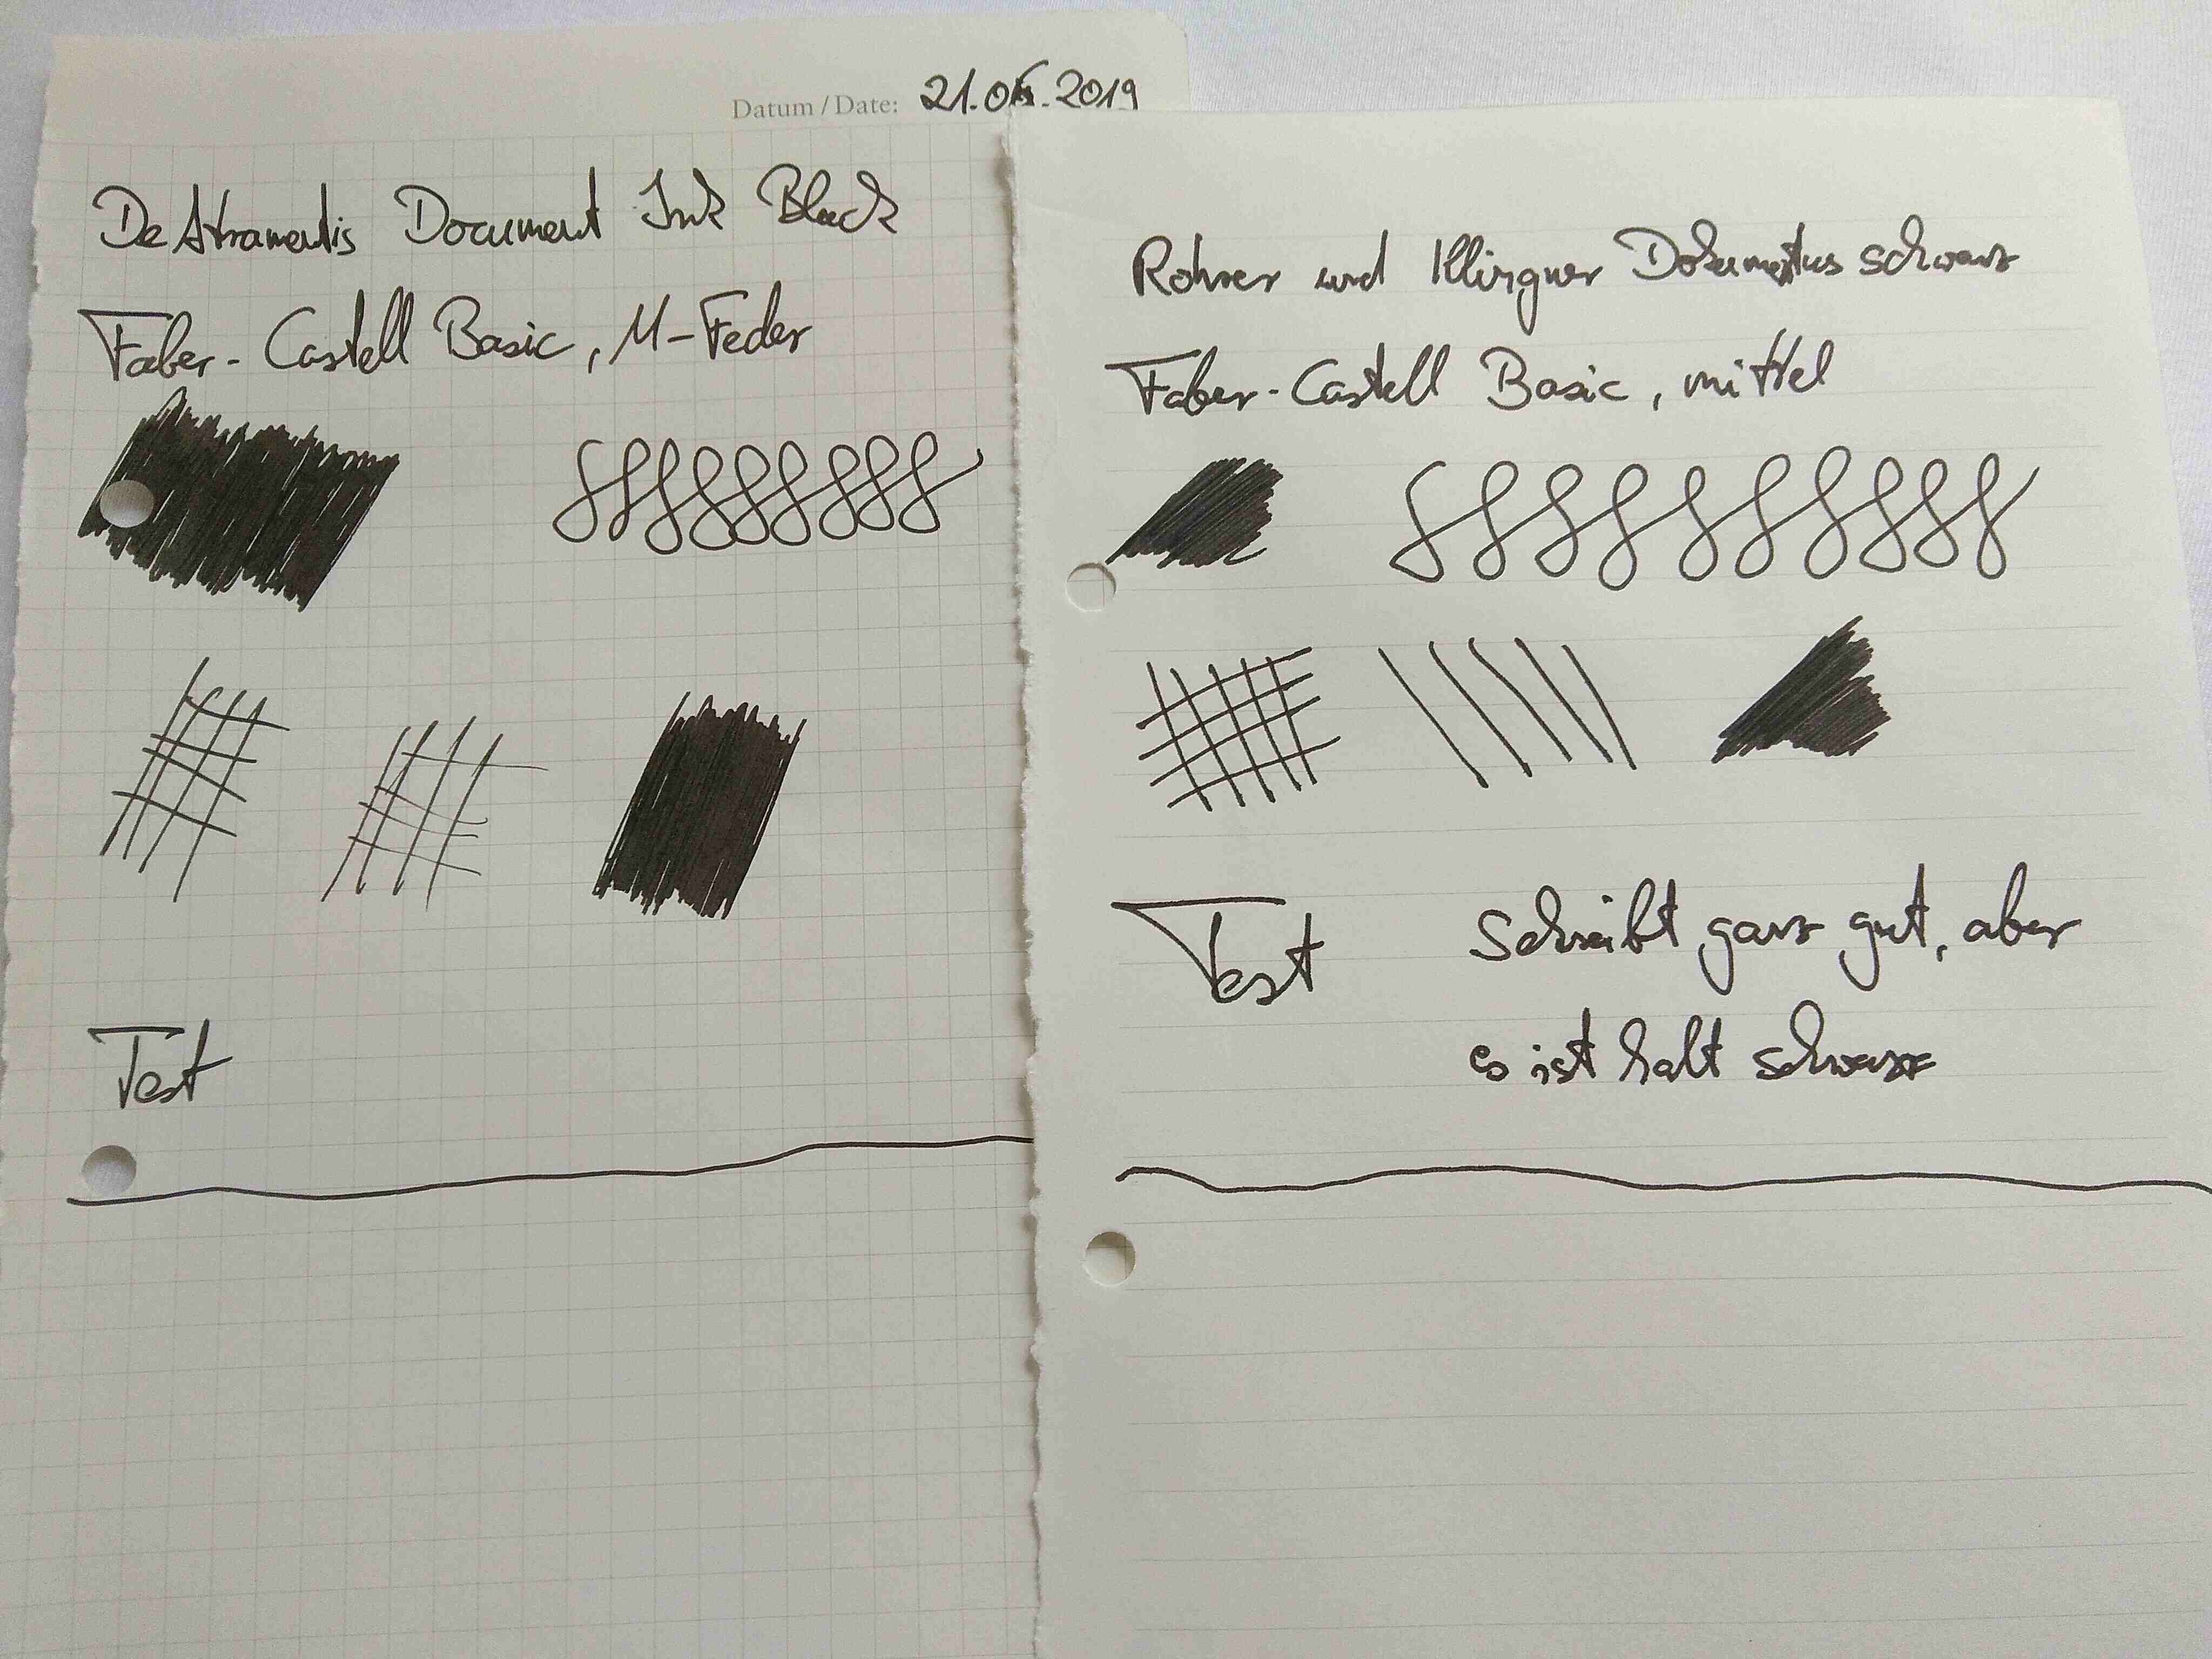 Datum / Date: 21. .2019
De Atramentis Document Ink Black
Faber-Castell Basic, M-Feder
Test
Rohrer und Klingner Dokumentus schwarz
Faber-Castell Basic, mittel
Test
Schreibt ganz gut, aber
es ist halt schwarz